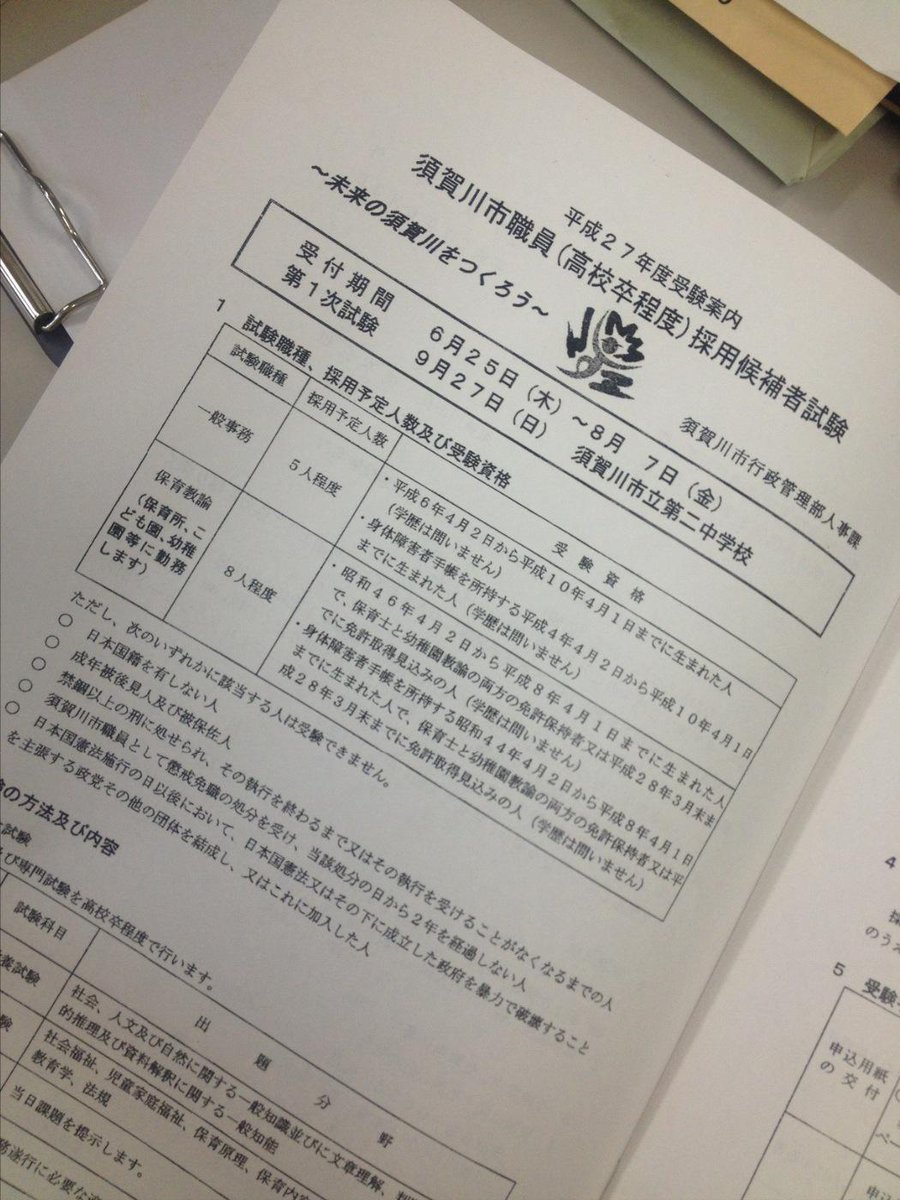 平成27年度受験案内
須賀川市職員(高校卒程度)採用候補者試験
~未来の須賀川をつくろう~
須賀川市行政管理部人事課
受付期間 6月25日(木)~8月 7日(金)
第1次試験 9月27日(日) 須賀川市立第二中学校
1 試験職種、採用予定人数及び受験資格
試験職種 採用予定人数 受験資格
一般事務 5人程度
・平成6年4月2日から平成10年4月1日までに生まれた人
(学歴は問いません)
・身体障害者手帳を所持する平成4年4月2日から平成10年4月1日
までに生まれた人(学歴は問いません)
保育教諭
(保育所、こ
ども園、幼稚
園等に勤務
します)
8人程度
・昭和46年4月2日から平成8年4月1日までに生まれた人
で、保育士と幼稚園教諭の両方の免許保持者又は平成28年3月末ま
でに免許取得見込みの人(学歴は問いません)
・身体障害者手帳を所持する昭和44年4月2日から平成8年4月1日
までに生まれた人で、保育士と幼稚園教諭の両方の免許保持者又は平
成28年3月末までに免許取得見込みの人(学歴は問いません)
ただし、次のいずれかに該当する人は受験できません。
○ 日本国籍を有しない人
○ 成年被後見人及び被保佐人
○ 禁錮以上の刑に処せられ、その執行を終わるまで又はその執行を受けることがなくなるまでの人
○ 須賀川市職員として懲戒免職の処分を受け、当該処分の日から2年を経過しない人
○ 日本国憲法施行の日以後において、日本国憲法又はその下に成立した政府を暴力で破壊すること
を主張する政党その他の団体を結成し、又はこれに加入した人
の方法及び内容
試験
び専門試験を高校卒程度で行います。
試験科目 出題分野
養試験
社会、人文及び自然に関する一般知識並びに文章理解、判
的推理及び資料解釈に関する一般知能
験
社会福祉、児童家庭福祉、保育原理、保育内容
教育学、法規
当日課題を提示します。
務遂行に必要な
4
採
のうえ
5 受験
申込用紙
の交付
ペー
申込